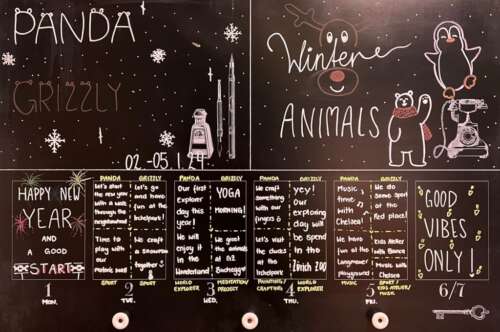 PANDA
GRIZZLY
02.-05.1.24
Winter
ANIMALS
HAPPY NEW
YEAR
AND
A GOOD
START
1
MON.
PANDA
Let's start
the new year
with a walk
through the
neighbourhood
Time to
play with
our
SPORT
GRIZZLY
Let's go
and have
fun at the
We craft
a
snowman
together
SPORT
2
TUE.
PANDA
Our first
Explorer
day this
year!
We will
enjoy it
in the
Wonderland
WORLD
EXPLORER
GRIZZLY
YOGA
MORNING!
We
animals
at
MEDITATION/
PROJECT
3
WED.
PANDA
We craft
something
with our
fingers
Let's visit
the ducks
at the
PAINTING/
CRAFTING
GRIZZLY
yey!
Our
exploring
day will
be spend
in the
Zürich Zoo
WORLD
EXPLORER
4
THU.
PANDA
Music
time
with
Chelsea!
We have
fun at the
playground
MUSIC
GRIZZLY
We do
Some Sport
at
Red place!
Kids Atelier
with
Music with
Chelsea
SPORT/
KIDS ATELIER/
MUSIC
5
FRI.
GOOD
VIBES
ONLY!
6/7